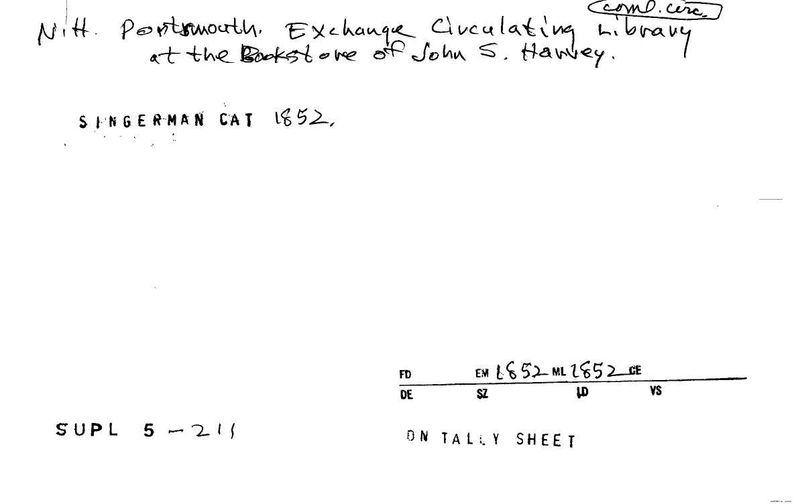 coml. circ.
N.H. Portsmouth. Exchange Circulating Library
at the Bookstore of John S. Harvey.
SINGERMAN CAT 1852.
FD EM 1852 ML 1852 CE
DE SZ LD VS
SUPL 5-211
ON TALLY SHEET